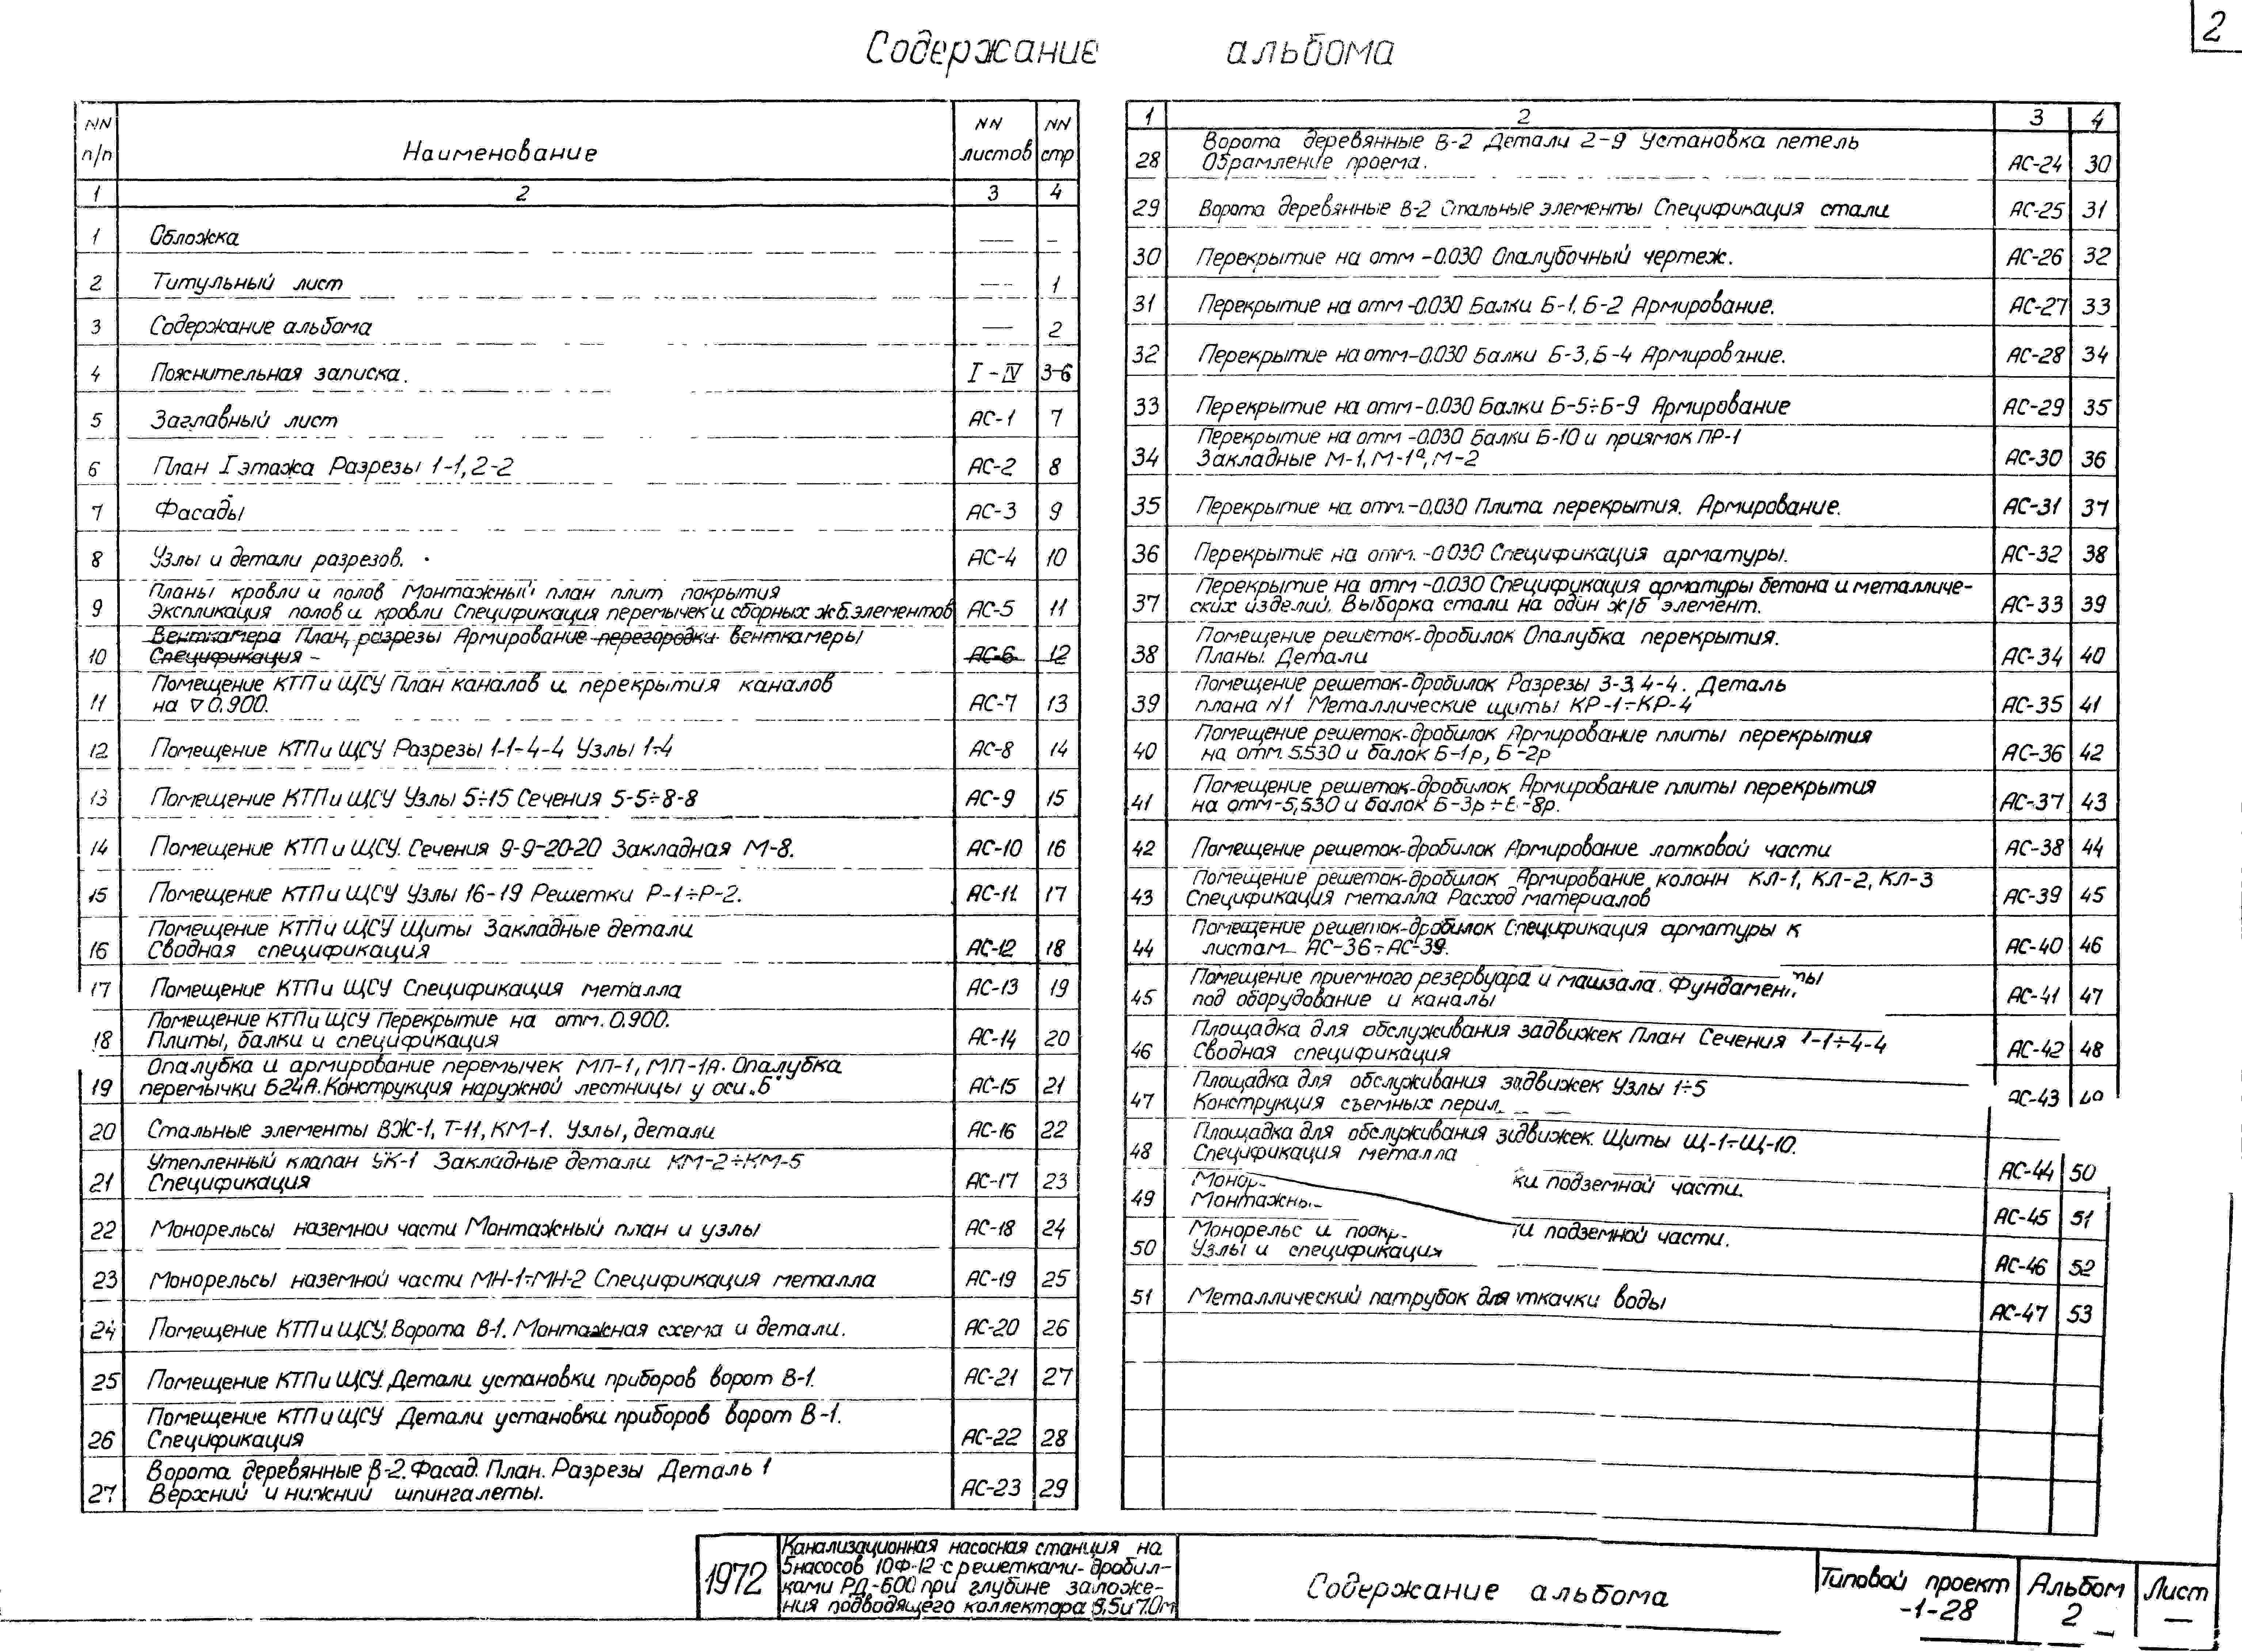 2
Содержание альбома
NN п/п Наименование NN листов NN стр
1 2 3 4
1 Обложка — –
2 Титульный лист — 1
3 Содержание альбома — 2
4 Пояснительная записка. I-IV 3-6
5 Заглавный лист АС-1 7
6 План I этажа Разрезы 1-1, 2-2 АС-2 8
7 Фасады АС-3 9
8 Узлы и детали разрезов. АС-4 10
Планы кровли и полов Монтажный план плит покрытия
9 Экспликация полов и кровли Спецификация перемычек и сборных ж.б. элементов АС-5 11
Венткамера План, разрезы Армирование перегородки венткамеры
10 Спецификация – АС-6 12
Помещение КТП и ЩСУ План каналов и перекрытия каналов
11 на ▽ 0.900. АС-7 13
12 Помещение КТП и ЩСУ Разрезы 1-1÷4-4 Узлы 1÷4 АС-8 14
13 Помещение КТП и ЩСУ Узлы 5÷15 Сечения 5-5÷8-8 АС-9 15
14 Помещение КТП и ЩСУ. Сечения 9-9-20-20 Закладная М-8. АС-10 16
15 Помещение КТП и ЩСУ Узлы 16-19 Решетки Р-1÷Р-2. АС-11 17
Помещение КТП и ЩСУ Щиты Закладные детали
16 Сводная спецификация АС-12 18
17 Помещение КТП и ЩСУ Спецификация металла АС-13 19
Помещение КТП и ЩСУ Перекрытие на отм. 0.900.
18 Плиты, балки и спецификация АС-14 20
Опалубка и армирование перемычек МП-1, МП-1А. Опалубка
19 перемычки Б24А. Конструкция наружной лестницы у оси „Б" АС-15 21
20 Стальные элементы ВЖ-1, Т-11, КМ-1. Узлы, детали АС-16 22
Утепленный клапан УК-1 Закладные детали КМ-2÷КМ-5
21 Спецификация АС-17 23
22 Монорельсы наземной части Монтажный план и узлы АС-18 24
23 Монорельсы наземной части МН-1÷МН-2 Спецификация металла АС-19 25
24 Помещение КТП и ЩСУ. Ворота В-1. Монтажная схема и детали. АС-20 26
25 Помещение КТП и ЩСУ. Детали установки приборов ворот В-1. АС-21 27
Помещение КТП и ЩСУ Детали установки приборов ворот В-1.
26 Спецификация АС-22 28
Ворота деревянные В-2. Фасад. План. Разрезы Деталь 1
27 Верхний и нижний шпингалеты. АС-23 29
1 2 3 4
Ворота деревянные В-2 Детали 2-9 Установка петель
28 Обрамление проема. АС-24 30
29 Ворота деревянные В-2 Стальные элементы Спецификация стали АС-25 31
30 Перекрытие на отм -0.030 Опалубочный чертеж. АС-26 32
31 Перекрытие на отм -0.030 Балки Б-1, Б-2 Армирование. АС-27 33
32 Перекрытие на отм-0.030 Балки Б-3, Б-4 Армирование. АС-28 34
33 Перекрытие на отм-0.030 Балки Б-5÷Б-9 Армирование АС-29 35
Перекрытие на отм -0.030 Балки Б-10 и приямок ПР-1
34 Закладные М-1, М-1ᵃ, М-2 АС-30 36
35 Перекрытие на отм.-0,030 Плита перекрытия. Армирование. АС-31 37
36 Перекрытие на отм. -0.030 Спецификация арматуры. АС-32 38
Перекрытие на отм -0.030 Спецификация арматуры бетона и металличе-
37 ских изделий. Выборка стали на один ж/б элемент. АС-33 39
Помещение решеток-дробилок Опалубка перекрытия.
38 Планы. Детали АС-34 40
Помещение решеток-дробилок Разрезы 3-3, 4-4. Деталь
39 плана N1 Металлические щиты КР-1÷КР-4 АС-35 41
Помещение решеток-дробилок Армирование плиты перекрытия
40 на отм. 5.530 и балок Б-1р, Б-2р АС-36 42
Помещение решеток-дробилок Армирование плиты перекрытия
41 на отм-5,530 и балок Б-3р÷Б-8р. АС-37 43
42 Помещение решеток-дробилок Армирование лотковой части АС-38 44
Помещение решеток-дробилок Армирование колонн КЛ-1, КЛ-2, КЛ-3
43 Спецификация металла Расход материалов АС-39 45
Помещение решеток-дробилок Спецификация арматуры к
44 листам АС-36÷АС-39. АС-40 46
Помещение приемного резервуара и машзала. Фундаменты
45 под оборудование и каналы АС-41 47
Площадка для обслуживания задвижек План Сечения 1-1÷4-4
46 Сводная спецификация АС-42 48
Площадка для обслуживания задвижек Узлы 1÷5
47 Конструкция съемных перил. АС-43 49
Площадка для обслуживания задвижек. Щиты Щ-1÷Щ-10.
48 Спецификация металла АС-44 50
Монор ки подземной части.
49 Монтажны АС-45 51
Монорельс и подземной части.
50 Узлы и спецификация АС-46 52
51 Металлический патрубок для ткачки воды АС-47 53
1972
Канализационная насосная станция на
5 насосов 10Ф-12 с решетками-дробил-
ками РД-600 при глубине заложе-
ния подводящего коллектора 5,5 и 7.0м
Содержание альбома
Типовой проект
-1-28
Альбом
2
Лист
—